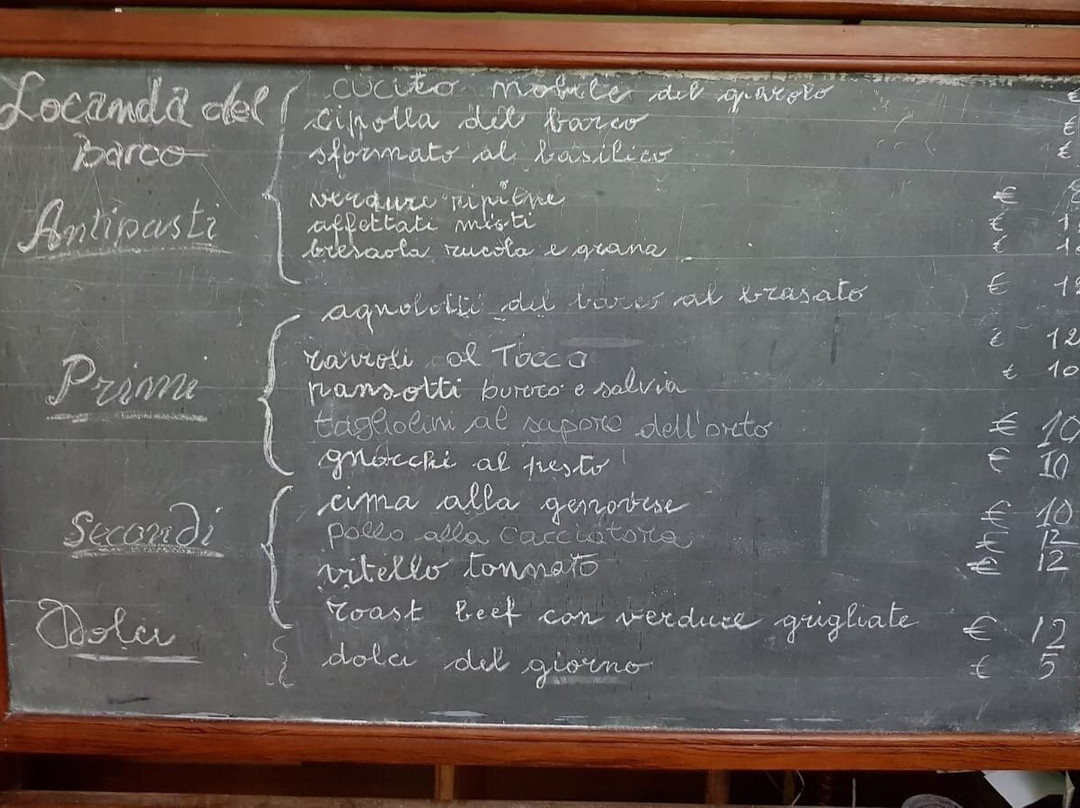 Locanda del
Barco
cucito mobile del giarolo €
cipolla del barco €
sformato al basilico €
Antipasti
verdure ripiene €
affettati misti € 1
bresaola rucola e grana € 1
agnolotti del barco al brasato € 12
Primi
ravioli al Tocco € 12
pansotti burro e salvia € 10
tagliolini al sapore dell'orto € 10
gnocchi al pesto € 10
Secondi
cima alla genovese € 10
pollo alla cacciatora € 12
vitello tonnato € 12
roast beef con verdure grigliate € 12
Dolci
dolci del giorno € 5